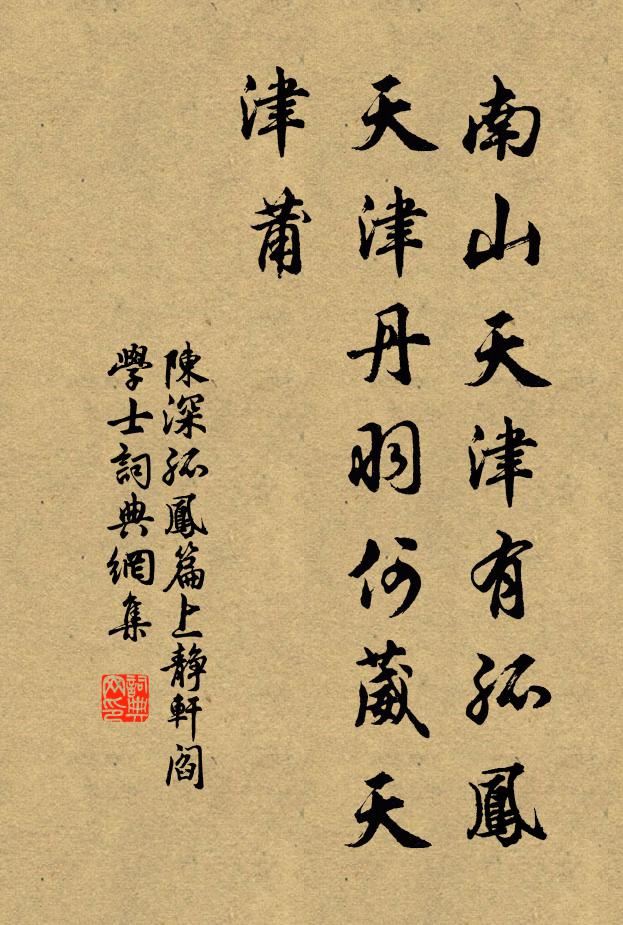 南山天津有孤鳳
天津丹羽何葳天
津莆
陳深孤鳳篇上静軒閻
學士詞典網集
詞典
文印